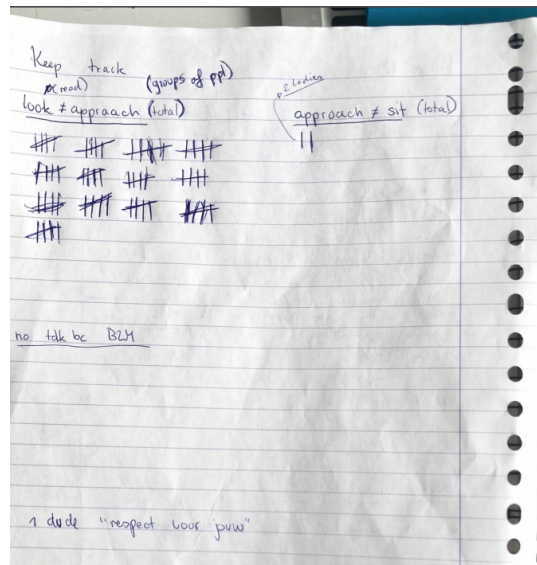 Keep track
(read) (groups of ppl)
look ≠ approach (total)
2 ladies
approach ≠ sit (total)
no talk bc BLM
1 dude "respect voor jouw"